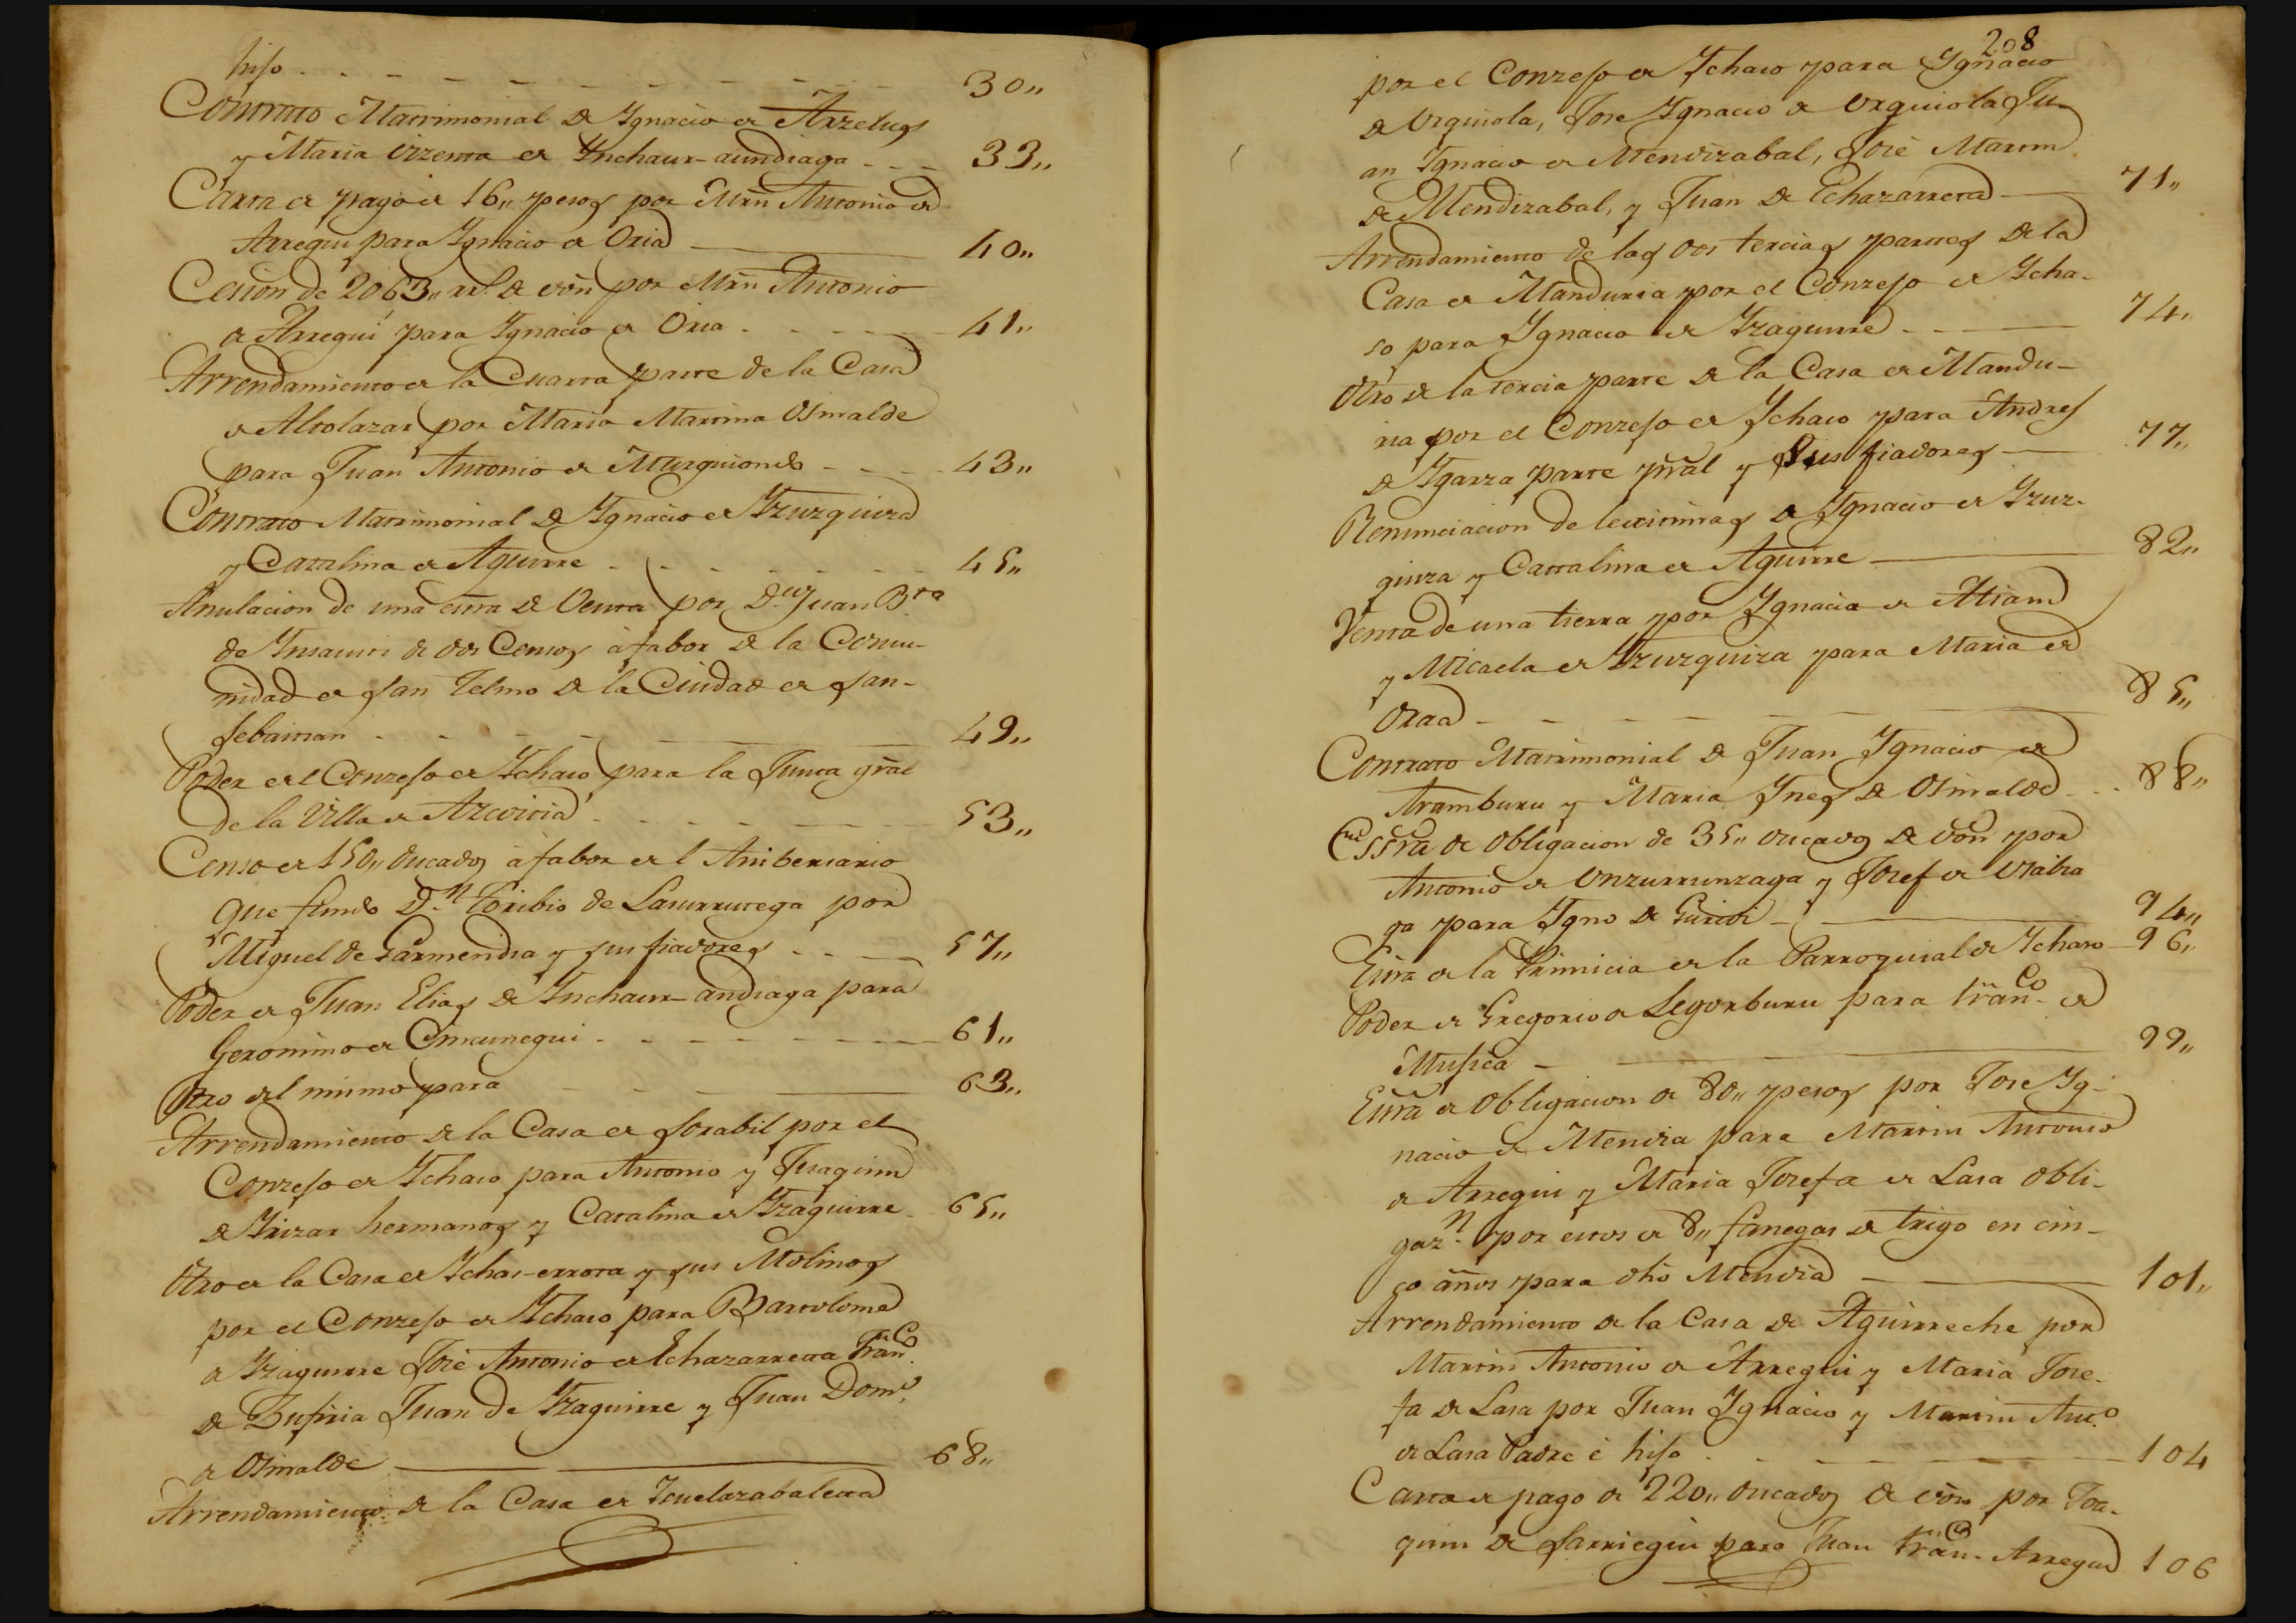 hijo - - - - - - - - 30,,
Contrato Matrimonial de Ygnacio de Arzelus
y Maria Vizenta de Ynchaur-aundiaga - - - 33,,
Carta de pago de 16,, pesos por Mrn Antonio de
Arregui para Ygnacio de Oria 40,,
Cesion de 2063,, rs. de von por Mrn Antonio
de Arregui para Ygnacio de Oria - - - 41,,
Arrendamiento de la Cuarta parte de la Casa
de Altolazar por Maria Martina Osinalde
para Juan Antonio de Murguiondo - - - 43,,
Contrato Matrimonial de Ygnacio de Yzurquiza
y Catalina de Aguirre - - - - - 45,,
Anulacion de una escra de Venta por Dn Juan Bta
de Ynsausti de dos Censos à fabor de la Comu-
nidad de San Telmo de la Ciudad de San-
sebastian - - - 49,,
Poder del Conzejo de Ychaso para la Junta gral
de la Villa de Azcoitia - - - 53,,
Censo de 150,, ducados à fabor del Anibersario
que fundo Dn Toribio de Lasurrutega por
Miguel de Garmendia y sus fiadores - - - 57,,
Poder de Juan Elias de Ynchaur-andiaga para
Geronimo de Cincunegui - - - 61,,
Otro del mismo para - - - 63,,
Arrendamiento de la Casa de Sorabil por el
Conzejo de Ychaso para Antonio y Juaquin
de Yrizar hermanos y Catalina de Yzaguirre - 65,,
Otro de la Casa de Ychas-errota y sus Molinos
por el Conzejo de Ychaso para Bartolome
de Yzaguirre José Antonio de Echazarreta Franco
de Zufiria Juan de Yzaguirre y Juan Domo
de Osinalde 68,,
Arrendamiento de la Casa de
208
por el Conzejo de Ychaso para Ygnacio
de Urquiola, Jose Ygnacio de Urquiola Ju-
an Ygnacio de Mendizabal, José Martin
de Mendizabal, y Juan de Echazarreta 71,,
Arrendamiento de las dos tercias partes de la
Casa de Manduria por el Conzejo de Ycha-
so para Ygnacio de Yzaguirre - - - 74,,
Otro de la tercia parte de la Casa de Mandu-
ria por el Conzejo de Ychaso para Andres
de Ygarza parte pral y sus fiadores 77,,
Renunciacion de lexitimas de Ygnacio de Yzur-
quiza y Cattalina de Aguirre 82,,
Venta de una tierra por Ygnacio de
y Micaela de Yzurquiza para Maria de
Oraa - - - 85,,
Contrato Matrimonial de Juan Ygnacio de
Aramburu y Maria Ynes de Osinalde - - 88,,
Essra de obligacion de 35,, ducados de von por
Antonio de Unzurrunzaga y Josef de
ga para Ygno de Guridi 94,,
Escra de la Primicia de la Parroquial de Ychaso 96,,
Poder de Gregorio de Legorburu para Franco de
Mujica 99,,
Escra de obligacion de 80,, pesos por Jose Yg-
nacio de Mendia para Martin Antonio
de Arregui y Maria Josefa de Lasa obli-
gazn por estos de 8,, fanegas de trigo en cin-
co años para dho Mendia 101,,
Arrendamiento de la Casa de Aguirreche por
Martin Antonio de Arregui y Maria Jose-
fa de Lasa por Juan Ygnacio y Martin Anto
de Lasa Padre è hijo - - - 104
Carta de pago de 220,, ducados de von por Joa-
quin de Sarriegui para Juan Franco Arregui 106